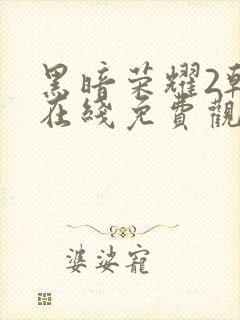 黑暗荣耀2韩
在綫免費觀
婆娑寵